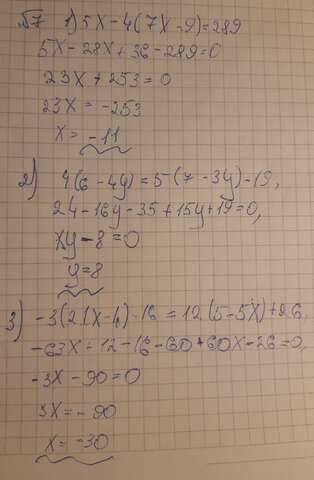 №7 1) 5x - 4(7x - 9) = 289
5x - 28x + 36 - 289 = 0
23x + 253 = 0
23x = -253
x = -11
2) 4(6 - 4y) = 5(7 - 3y) - 19,
24 - 16y - 35 + 15y + 19 = 0,
y - 8 = 0
y = 8
3) -3(21x - 4) - 16 = 12(5 - 5x) + 26.
-63x + 12 - 16 - 60 + 60x - 26 = 0,
-3x - 90 = 0
3x = -90
x = -30